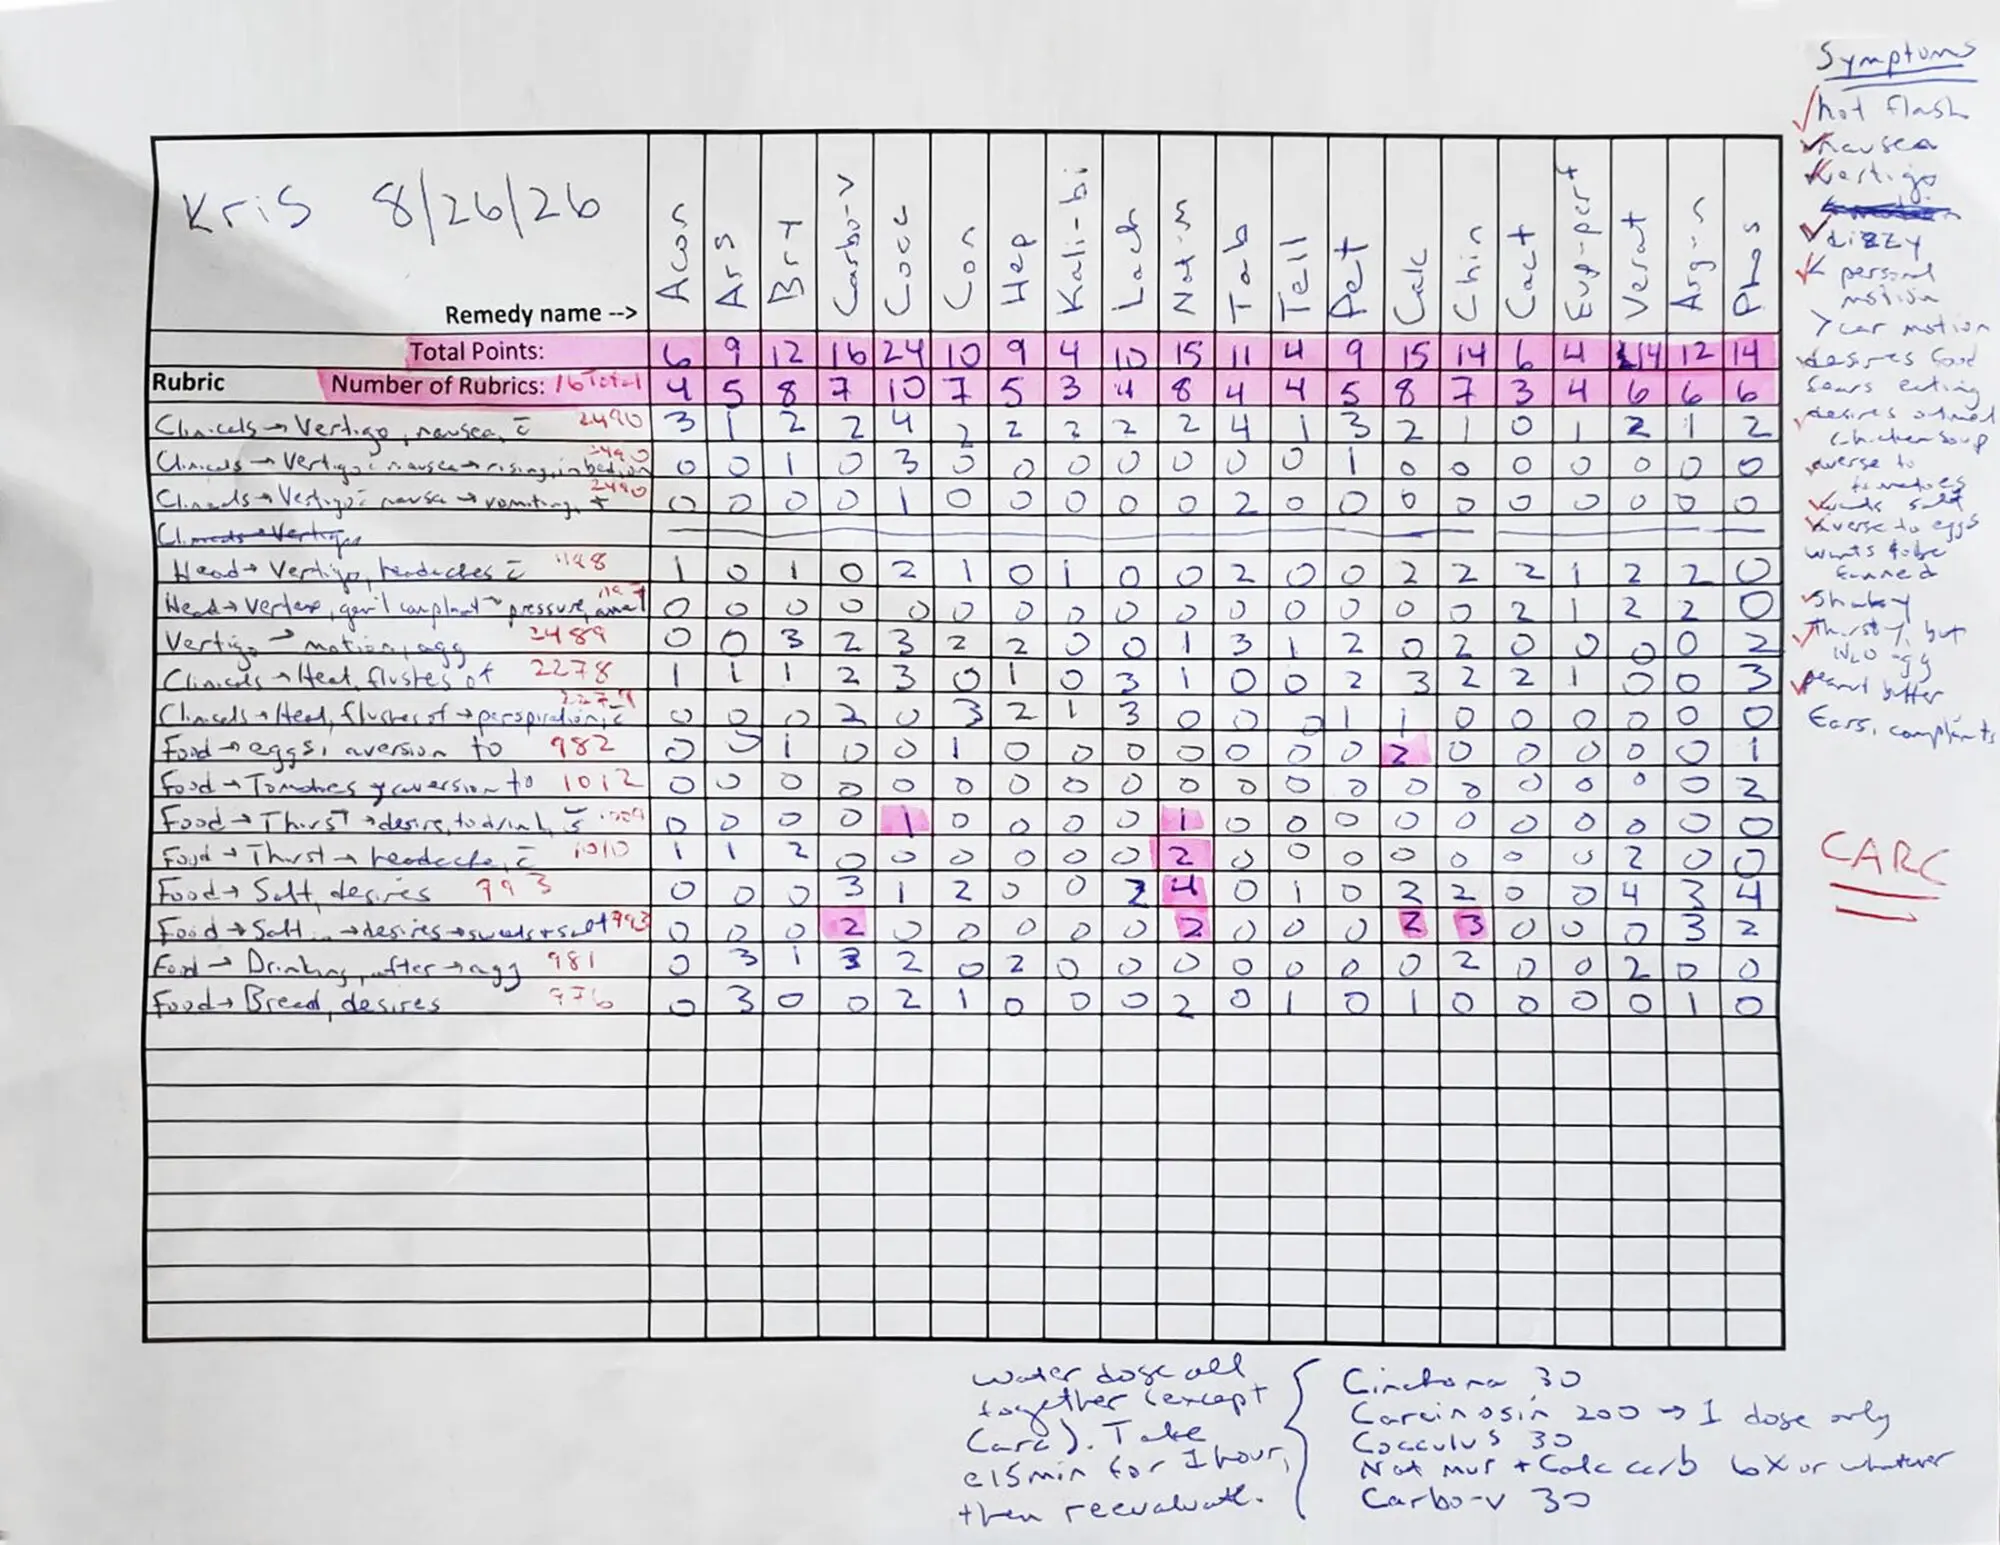 Kris 8/26/26
Remedy name -->
Acon Ars Bry Carbo-v Cocc Con Hep Kali-bi Lach Nat-m Tab Tell Pet Calc Chin Cact Eup-perf Verat Arg-n Phos
Total Points: 6 9 12 16 24 10 9 4 10 15 11 4 9 15 14 6 4 14 12 14
Rubric Number of Rubrics: 16 Total 4 5 8 7 10 7 5 3 4 8 4 4 5 8 7 3 4 6 6 6
Clinicals → Vertigo, nausea, c̄ 2490 3 1 2 2 4 2 2 2 2 2 4 1 3 2 1 0 1 2 1 2
Clinicals → Vertigo c̄ nausea → rising, in bed, on 2490 0 0 1 0 3 0 0 0 0 0 0 0 1 0 0 0 0 0 0 0
Clinicals → Vertigo c̄ nausea → vomiting, + 2490 0 0 0 0 1 0 0 0 0 0 2 0 0 0 0 0 0 0 0 0
Clinicals → Vertigo
Head → Vertigo, headaches c̄ 1198 1 0 1 0 2 1 0 1 0 0 2 0 0 2 2 2 1 2 2 0
Head → Vertex, gen'l complaint → pressure, 1197 0 0 0 0 0 0 0 0 0 0 0 0 0 0 0 2 1 2 2 0
Vertigo → motion, agg 2489 0 0 3 2 3 2 2 0 0 1 3 1 2 0 2 0 0 0 0 2
Clinicals → Heat, flushes of 2278 1 1 1 2 3 0 1 0 3 1 0 0 2 3 2 2 1 0 0 3
Clinicals → Head, flushes of → perspiration, c̄ 2279 0 0 0 2 0 3 2 1 3 0 0 0 1 1 0 0 0 0 0 0
Food → eggs, aversion to 982 0 0 1 0 0 1 0 0 0 0 0 0 0 2 0 0 0 0 0 1
Food → Tomatoes, aversion to 1012 0 0 0 0 0 0 0 0 0 0 0 0 0 0 0 0 0 0 0 2
Food → Thirst → desire, to drink, s̄ 1009 0 0 0 0 1 0 0 0 0 1 0 0 0 0 0 0 0 0 0 0
Food → Thirst → headache, c̄ 1010 1 1 2 0 0 0 0 0 0 2 0 0 0 0 0 0 0 2 0 0
Food → Salt, desires 993 0 0 0 3 1 2 0 0 2 4 0 1 0 2 2 0 0 4 3 4
Food → Salt → desires → sweets + salt 993 0 0 0 2 0 0 0 0 0 2 0 0 0 2 3 0 0 0 3 2
Food → Drinking, after → agg 981 0 3 1 3 2 0 2 0 0 0 0 0 0 0 2 0 0 2 0 0
Food → Bread, desires 976 0 3 0 0 2 1 0 0 0 2 0 1 0 1 0 0 0 0 1 0
Symptoms
hot flash
nausea
Vertigo
dizzy
< personal
motion
> car motion
desires food
fears eating
desires oatmeal
chicken soup
averse to
tomatoes
wants salt
averse to eggs
wants to be
fanned
shaky
Thirsty, but
H2O agg
peanut butter
Ears, complaints
CARC
Water dose all
together (except
Carc). Take
e15min for 1 hour,
then reevaluate.
Cinchona 30
Carcinosin 200 → 1 dose only
Cocculus 30
Nat mur + Calc carb 6X or whatever
Carbo-v 30